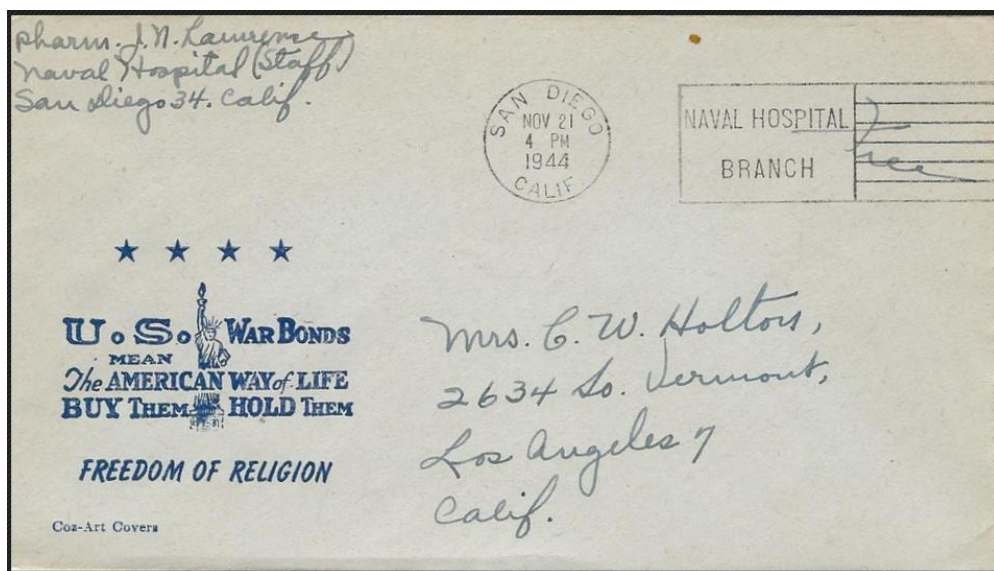 Pharm. J. N. Lawrence
Naval Hospital (Staff)
San Diego 34. Calif.
SAN DIEGO
NOV 21
4 PM
1944
CALIF
NAVAL HOSPITAL
BRANCH
Free
U. S. WAR BONDS
MEAN
The AMERICAN WAY of LIFE
BUY THEM HOLD THEM
FREEDOM OF RELIGION
Coz-Art Covers
Mrs. C. W. Holtois,
2634 So. Vermont,
Los Angeles 7
Calif.